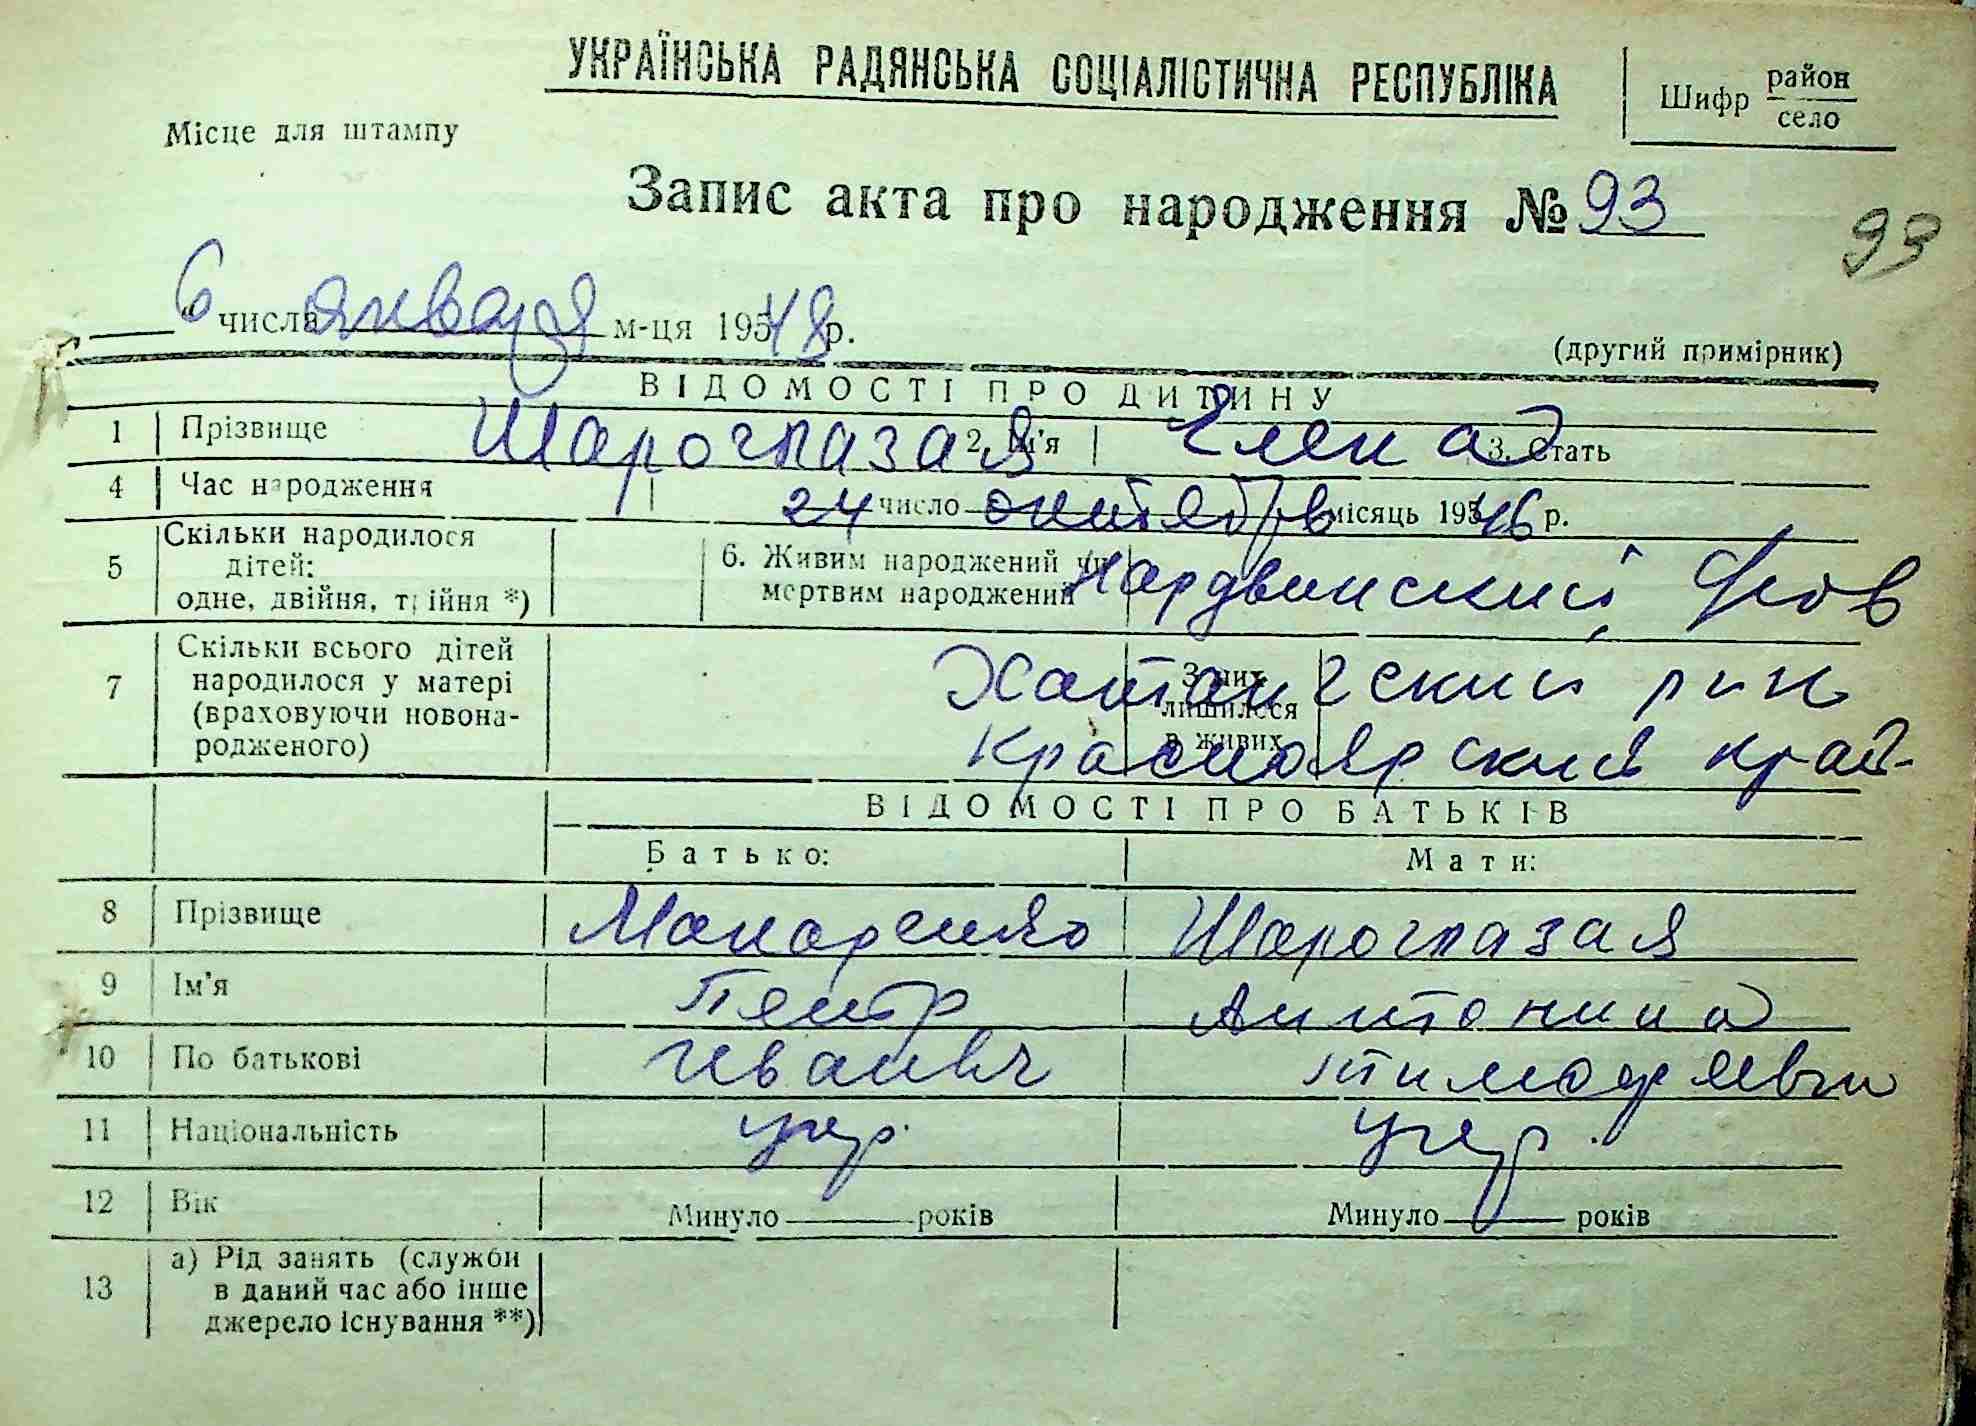 УКРАЇНСЬКА РАДЯНСЬКА СОЦІАЛІСТИЧНА РЕСПУБЛІКА
Шифр район
село
Місце для штампу
Запис акта про народження № 93
93
6 числа января м-ця 1948 р.
(другий примірник)
ВІДОМОСТІ ПРО ДИТИНУ
1 Прізвище Шароглазая 2. Ім'я Елена 3. Стать
4 Час народження 24 число октября місяць 1946 р.
5 Скільки народилося дітей: одне, двійня, трійня *)
6. Живим народжений чи мертвим народжений
Хатангский р-н
Красноярский край
7 Скільки всього дітей народилося у матері (враховуючи новонародженого)
З них лишилося в живих
ВІДОМОСТІ ПРО БАТЬКІВ
Батько: Мати:
8 Прізвище Макаренко Шароглазая
9 Ім'я Пётр Антонина
10 По батькові Иванвч
11 Національність укр. укр.
12 Вік Минуло років Минуло років
13 а) Рід занять (служби
в даний час або інше
джерело існування **)